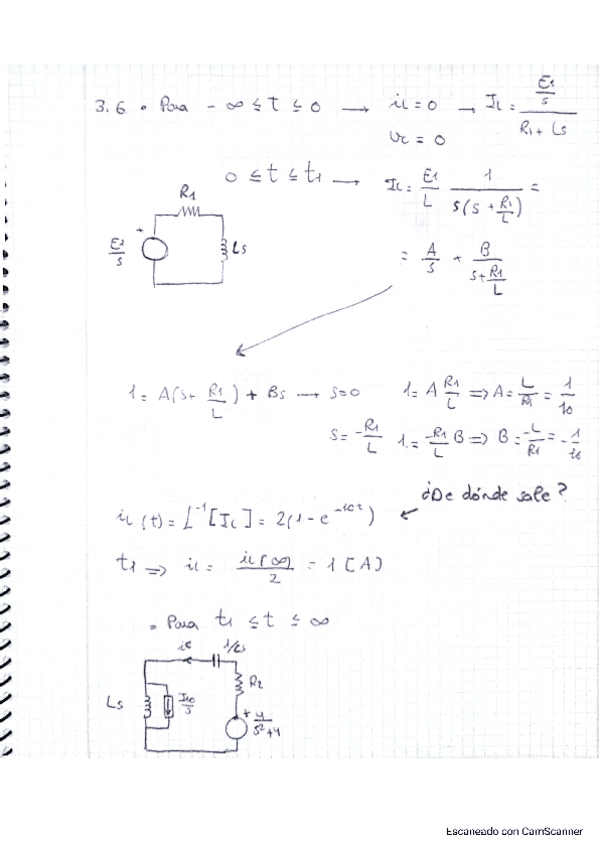 3.6 • Para -∞ ≤ t ≤ 0 → iL = 0 → IL = (E1/s)/(R1 + Ls)
vc = 0
0 ≤ t ≤ t1 → IL = E1/L 1/(s(s + R1/L)) =
R1
E1/s
+
Ls
= A/s + B/(s + R1/L)
1 = A(s + R1/L) + Bs → s=0 1 = A R1/L ⇒ A = L/R1 = 1/10
s = -R1/L 1 = -R1/L B ⇒ B = -L/R1 = -1/10
¿De dónde sale?
iL(t) = L⁻¹[IL] = 2(1 - e^-10t) ←
t1 ⇒ iL = iL(∞)/2 = 1 [A]
• Para t1 ≤ t ≤ ∞
ic 1/Cs
R2
Ls
IL0/s
+ 4/(s²+4)
Escaneado con CamScanner